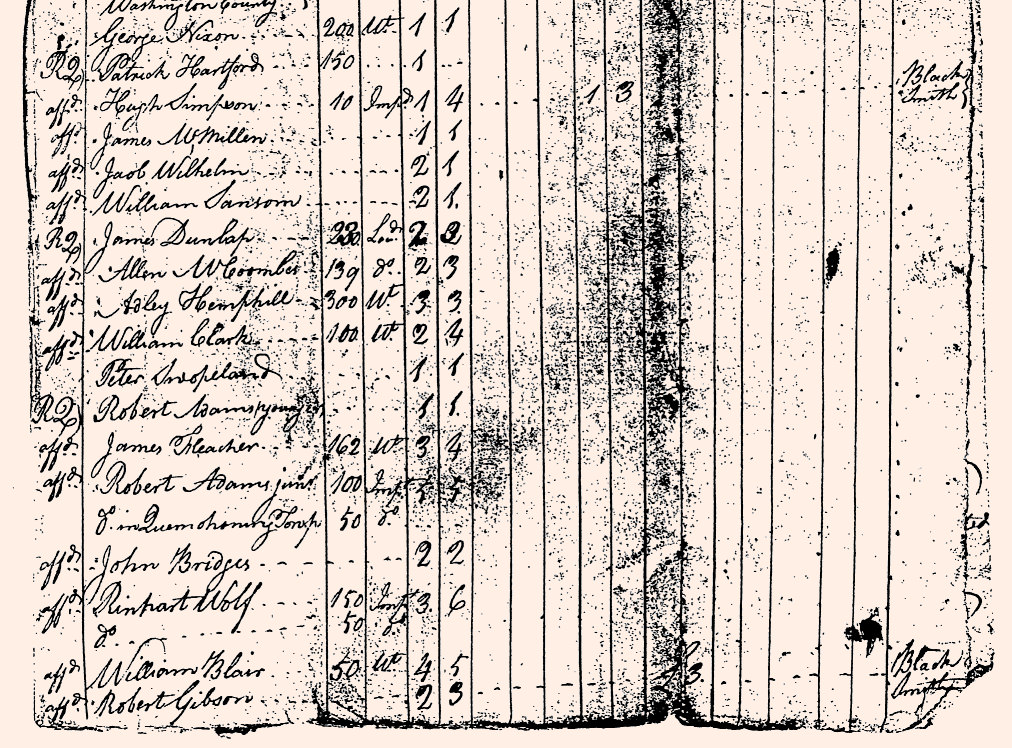 Washington County
George Nixon 200 Wt 1 1
R2 Patrick Hartford 150 1
affd Hugh Simpson 10 Impd 1 4 1 3 Black Smith
affd James McMillen 1 1
affd Jacob Wilhelm 2 1
affd William Sansom 2 1
R2 James Dunlap 230 Lod 2 3
affd Allen McCoomber 139 do 2 3
affd Adley Hemphill 300 Wt 3 3
affd William Clark 100 Wt 2 4
Peter Swopeland 1 1
R2 Robert Adams younger 1 1
affd James Fleacher 162 Wt 3 4
affd Robert Adams junr 100 Impt 5 5
do in Quemohoning Tonsp 50 do
affd John Bridges 2 2
affd Rinhart Wolf 150 Impt 3 6
do 50 do
affd William Blair 50 Wt 4 5 3 Black Smith
affd Robert Gibson 2 3